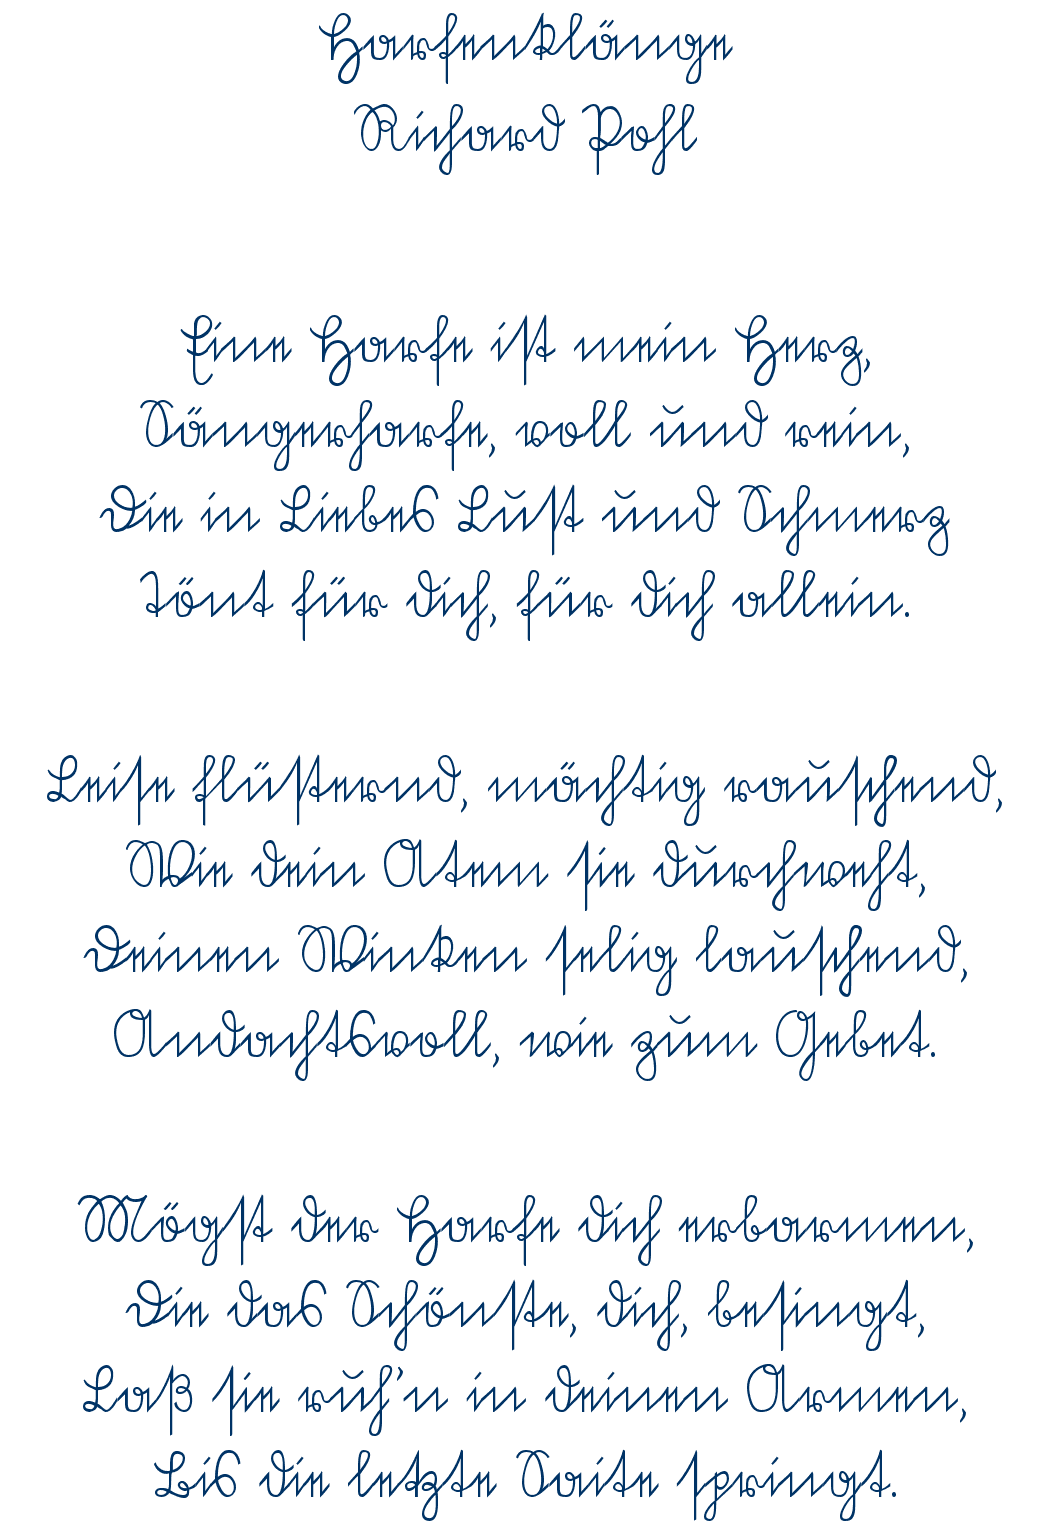 Harfenklänge
Richard Pohl
Eine Harfe ist mein Herz,
Sängerharfe, voll und rein,
Die in Liebes Lust und Schmerz
Tönt für dich, für dich allein.
Leise flüsternd, mächtig rauschend,
Wie dein Atem sie durchweht,
Deinen Winken selig lauschend,
Andachtsvoll, wie zum Gebet.
Mögst der Harfe dich erbarmen,
Die das Schönste, dich, besingt,
Laß sie ruh’n in deinen Armen,
Bis die letzte Saite springt.